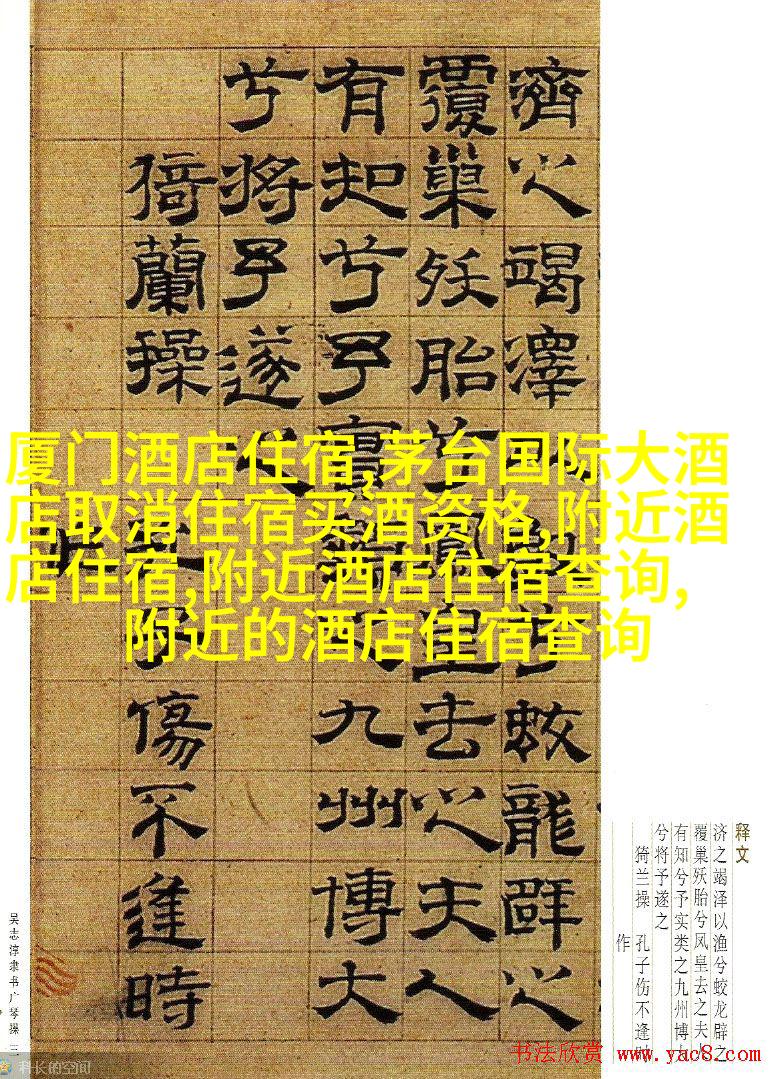 厦门酒店住宿,茅台国际大酒
店取消住宿买酒资格,附近酒
店住宿,附近酒店住宿查询,
附近的酒店住宿查询
濟之竭澤兮蛟龍辟之
覆巢殀胎兮鳳皇去之夫人
有知兮予實類之九州博大
兮將予遂之
猗蘭操 傷不逢時
释文
济之竭泽以渔兮蛟龙辟之
覆巢殀胎兮凤皇去之夫
有知兮予实类之九州博
兮将予遂之
猗兰操 孔子伤不逢
作
吴志淳隶书广琴操 三
科长的空间
书法欣赏 www.yac8.com